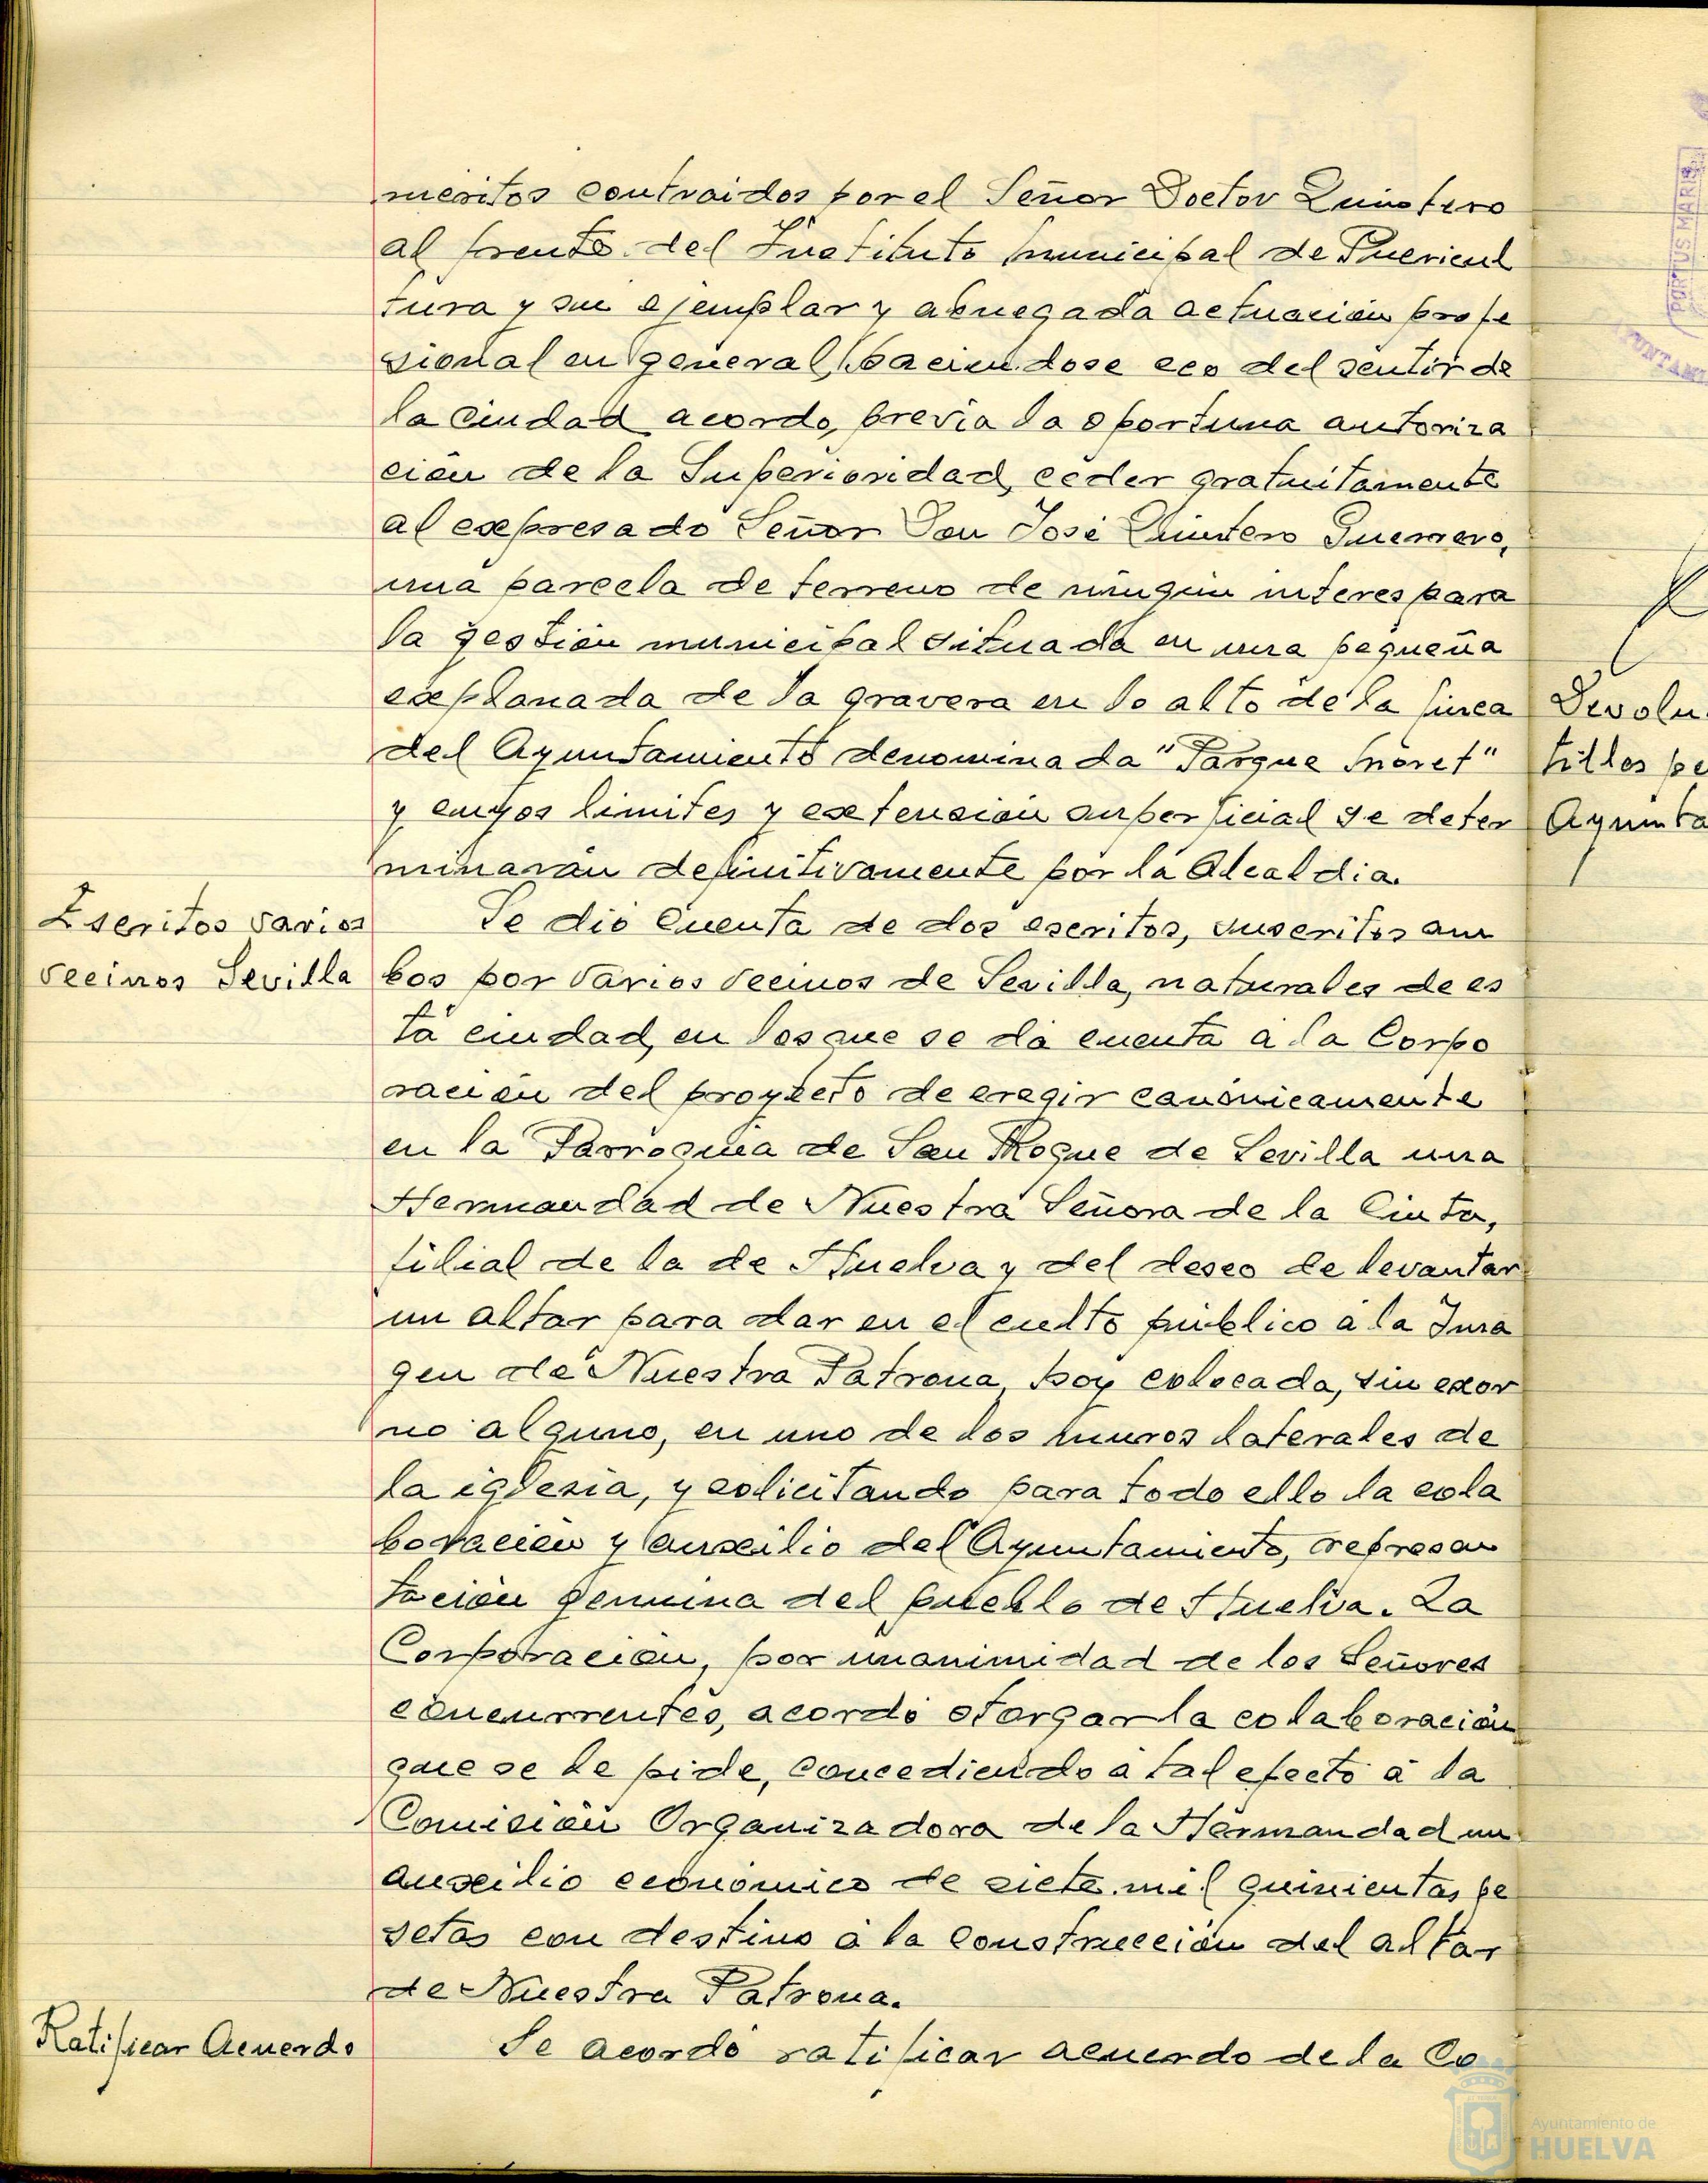 meritos contraidos por el Señor Doctor Quintero
al frente del Instituto municipal de Puericul
tura y su ejemplar y abnegada actuación profe
sional en general, haciendose eco del sentir de
la Ciudad acordo, previa la oportuna autoriza
ción de la Superioridad, ceder gratuitamente
al expresado Señor Don José Quintero Guerrero,
una parcela de terreno de ningún interes para
la gestión municipal situada en una pequeña
explanada de la gravera en lo alto de la finca
del Ayuntamiento denominada "Parque Moret"
y cuyos limites y extensión superficial se deter
minarán definitivamente por la Alcaldia.
Escritos varios
vecinos Sevilla
Se dió Cuenta de dos escritos, suscritos am
bos por varios vecinos de Sevilla, naturales de es
ta ciudad, en los que se dá cuenta á la Corpo
ración del proyecto de eregir canónicamente
en la Parroquia de San Roque de Sevilla una
Hermandad de Nuestra Señora de la Cinta,
filial de la de Huelva y del deseo de levantar
un altar para dar en el culto público á la Ima
gen de Nuestra Patrona, hoy colocada, sin exor
no alguno, en uno de los muros laterales de
la iglesia, y solicitando para todo ello la cola
boración y auxilio del Ayuntamiento, represen
tación genuina del pueblo de Huelva. La
Corporación, por unanimidad de los Señores
concurrentes, acordó otorgar la colaboración
que se le pide, concediendo á tal efecto á la
Comisión Organizadora de la Hermandad un
auxilio económico de siete mil quinientas pe
setas con destino á la construcción del altar
de Nuestra Patrona.
Ratificar Acuerdo
Se acordó ratificar acuerdo de la Co
Devolu
tillos pe
Ayunta
PORTUS MARIS
AYUNTAMI
Ayuntamiento de
HUELVA